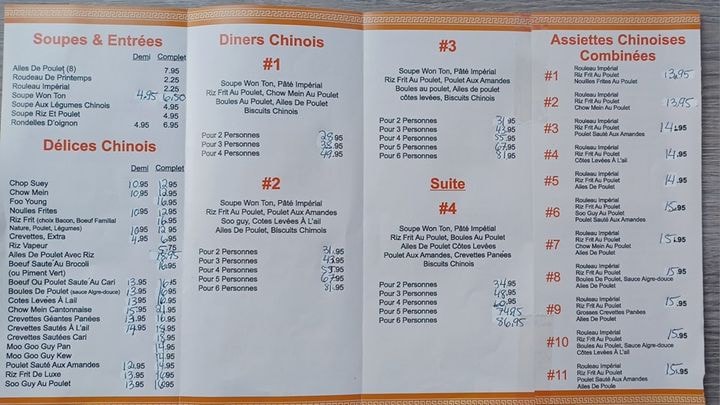 Soupes & Entrées
Demi Complet
Ailes De Poulet (8) 7.95
Roudeau De Printemps 2.25
Rouleau Impérial 2.25
Soupe Won Ton 4.95 6.50
Soupe Aux Légumes Chinois 4.95
Soupe Riz Et Poulet 4.95
Rondelles D'oignon 4.95 6.95
Délices Chinois
Demi Complet
Chop Suey 10.95 12.95
Chow Mein 10.95 12.95
Foo Young 16.95
Noulles Frites 10.95 12.95
Riz Frit (choix Bacon, Boeuf Familial 16.95
Nature, Poulet, Légumes) 10.95 12.95
Crevettes, Extra 4.95 6.95
Riz Vapeur 5.75
Ailes De Poulet Avec Riz 18.95
Boeuf Sauté Au Brocoli 16.95
(ou Piment Vert)
Boeuf Ou Poulet Sauté Au Cari 13.95 16.95
Boules De Poulet (sauce Aigre-douce) 13.95 16.95
Cotes Levées À Lail 13.95 16.95
Chow Mein Cantonnaise 15.95 21.95
Crevettes Géantes Panées 13.95 16.95
Crevettes Sautés À L'ail 14.95 18.95
Crevettes Sautées Cari 18.95
Moo Goo Guy Pan 14.95
Moo Goo Guy Kew 14.95
Poulet Sauté Aux Amandes 12.95 14.95
Riz Frit De Luxe 13.95 16.95
Soo Guy Au Poulet 13.95 16.95
Diners Chinois
#1
Soupe Won Ton, Pâté Impérial
Riz Frit Au Poulet, Chow Mein Au Poulet
Boules Au Poulet, Ailes De Poulet
Biscuits Chinois
Pour 2 Personnes 28.95
Pour 3 Personnes 38.95
Pour 4 Personnes 49.95
#2
Soupe Won Ton, Pâté Impérial
Riz Frit Au Poulet, Poulet Aux Amandes
Soo guy, Cotes Levées À L'ail
Ailes De Poulet, Biscuits Chimois
Pour 2 Personnes 31.95
Pour 3 Personnes 43.95
Pour 4 Personnes 55.95
Pour 5 Personnes 67.95
Pour 6 Personnes 81.95
#3
Soupe Won Ton, Pâté Impérial
Riz Frit Au Poulet, Poulet Aux Amandes
Boules au poulet, Ailes de poulet
côtes levées, Biscuits Chinois
Pour 2 Personnes 31.95
Pour 3 Personnes 43.95
Pour 4 Personnes 55.95
Pour 5 Personnes 67.95
Pour 6 Personnes 81.95
Suite
#4
Soupe Won Ton, Pâté Impérial
Riz Frit Au Poulet, Boules Au Poulet
Ailes De Poulet Côtes Levées
Poulet Aux Amandes, Crevettes Panées
Biscuits Chinois
Pour 2 Personnes 34.95
Pour 3 Personnes 48.95
Pour 4 Personnes 60.95
Pour 5 Personnes 74.95
Pour 6 Personnes 86.95
Assiettes Chinoises
Combinées
Rouleau Impérial
#1 Riz Frit Au Poulet 13.95
Nouilles Frites Au Poulet
Rouleau Impérial
#2 Riz Frit Au Poulet 13.95
Chow Mein Au Poulet
Rouleau Impérial
#3 Riz Frit Au Poulet 14.95
Poulet Sauté Aux Amandes
Rouleau Impérial
#4 Riz Frit Au Poulet 14.95
Côtes Levées À L'ail
Rouleau Impérial
#5 Riz Frit Au Poulet 14.95
Ailes De Poulet
Rouleau Impérial
#6 Riz Frit Au Poulet 15.95
Soo Guy Au Poulet
Poulet Sauté Aux Amandes
Rouleau Impérial
#7 Riz Frit Au Poulet 15.95
Chow Mein Au Poulet
Ailes De Poulet
Rouleau Impérial
#8 Riz Frit Au Poulet 15.95
Boules Au Poulet, Sauce Aigre-douce
Ailes De Poulet
Rouleau Impérial
#9 Riz Frit Au Poulet 15.95
Grosses Crevettes Panées
Ailes De Poulet
Rouleau Impérial
#10 Riz Frit Au Poulet 15.95
Boules Au Poulet, Sauce Aigre-douce
Côtes Levées À L'Ail
Rouleau Impérial
#11 Riz Frit Au Poulet 15.95
Poulet Sauté Aux Amandes
Ailes De Poule